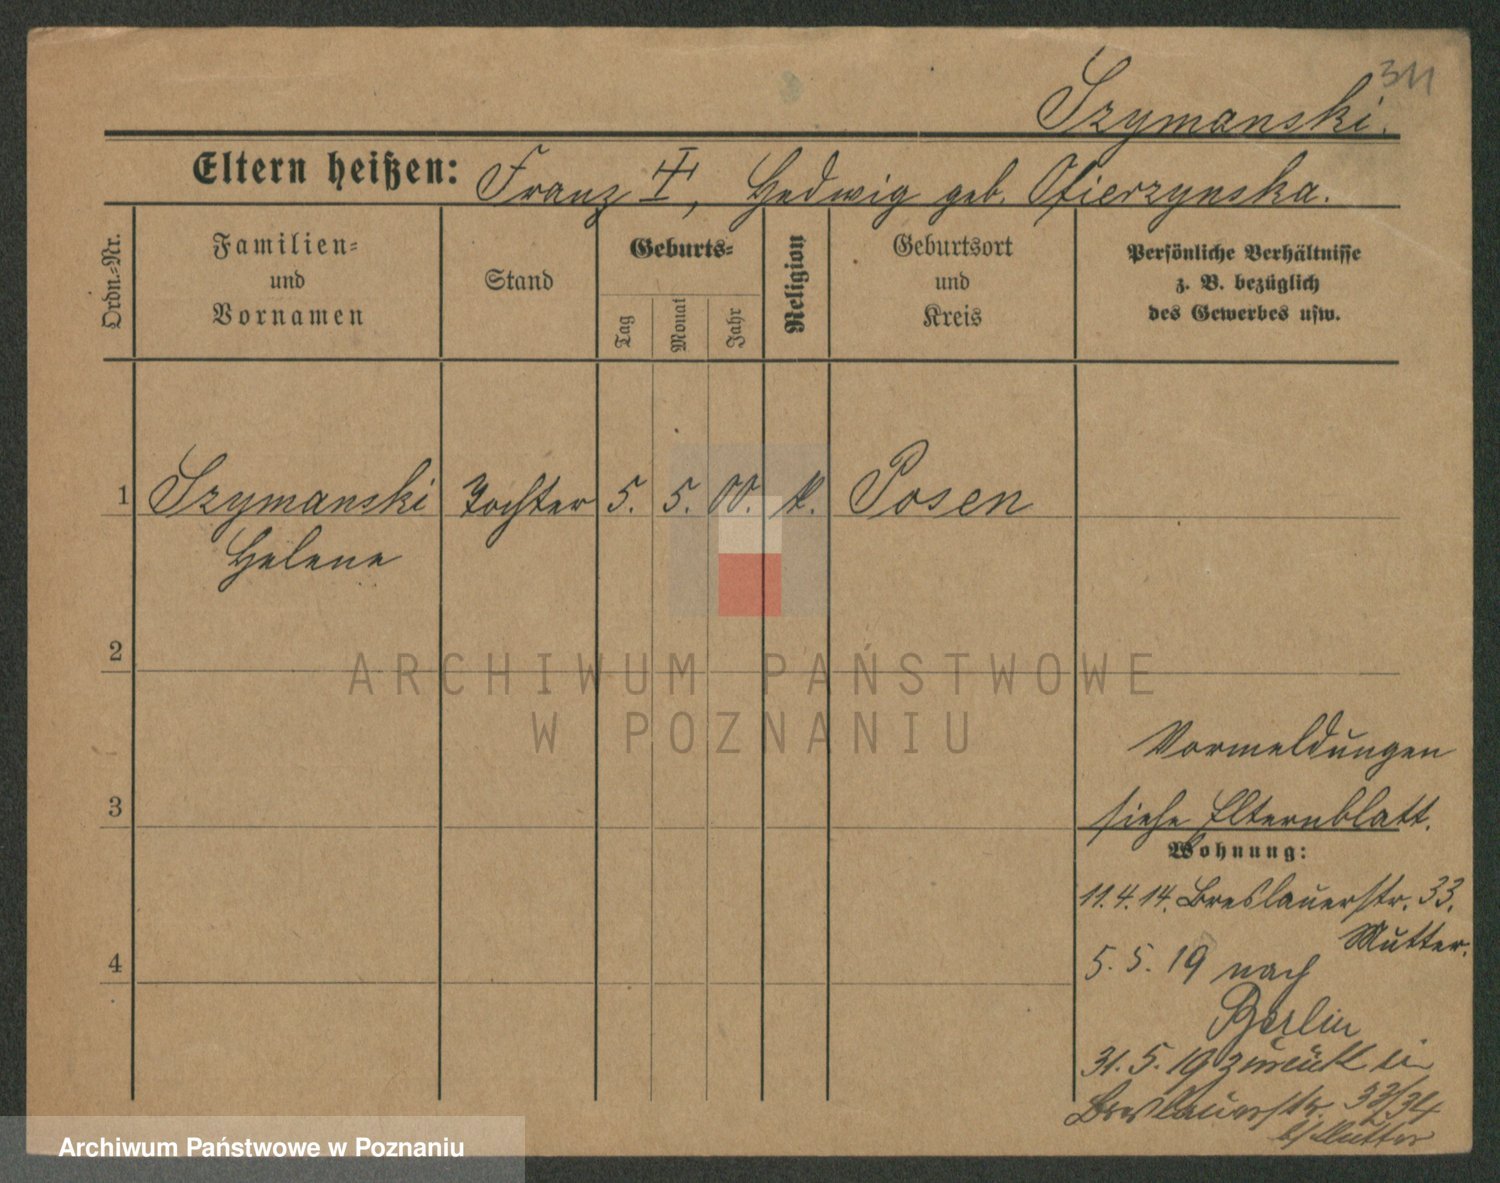 311
Szymanski.
Eltern heißen: Franz, Hedwig geb. Ofierzynska.
Ordn.-Nr.
Familien-
und
Vornamen
Stand
Geburts-
Tag
Monat
Jahr
Religion
Geburtsort
und
Kreis
Persönliche Verhältnisse
z. B. bezüglich
des Gewerbes usw.
1 Szymanski Tochter 5. 5. 00. k. Posen
Helene
2
ARCHIWUM PAŃSTWOWE
W POZNANIU
Vormeldungen
3
siehe Elternblatt.
Wohnung:
11.4.14. Breslauerstr. 33.
Mutter.
4
5. 5. 19 nach
Berlin
31. 5. 19 zurück in
Breslauerstr. 33/34
b/ Mutter
Archiwum Państwowe w Poznaniu